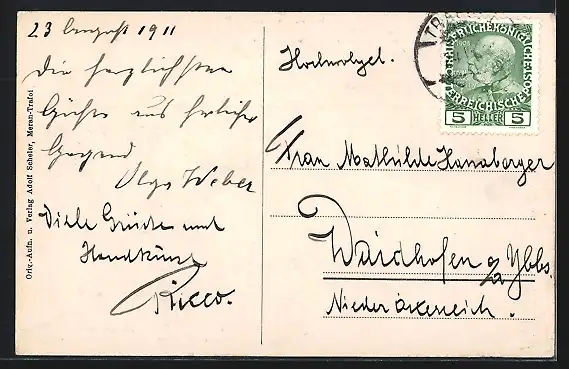 23 August 1911
Die herzlichsten
Grüße aus herrlicher
Gegend
Olga Weber
Viele Grüsse und
Handküsse
Ricco.
Ortg.-Aufn. u. Verlag Adolf Scheler, Meran-Trafoi
Hochwohlgeb.
Frau Mathilde Hansberger
Waidhofen a/d Ybbs.
Niederösterreich.
TRAFOI
KAISERLICHEKÖNIGLICHE
ÖSTERREICHISCHE
5 HELLER 5